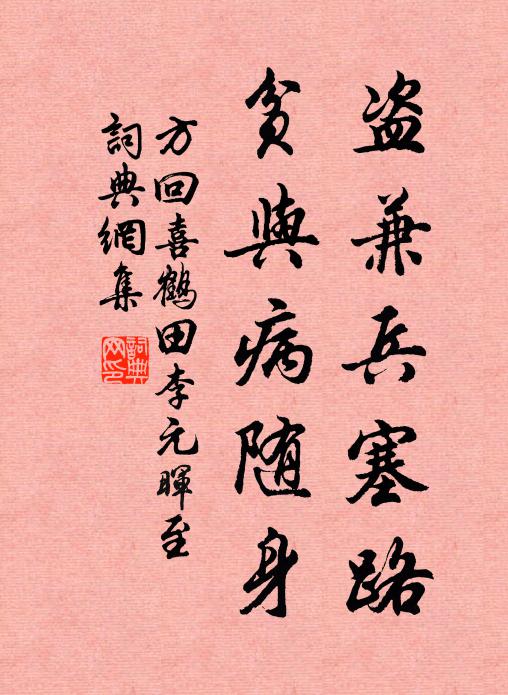 盗兼兵塞路
貧與病随身
方回喜鶴田李元暉至
詞典網集
詞典網印